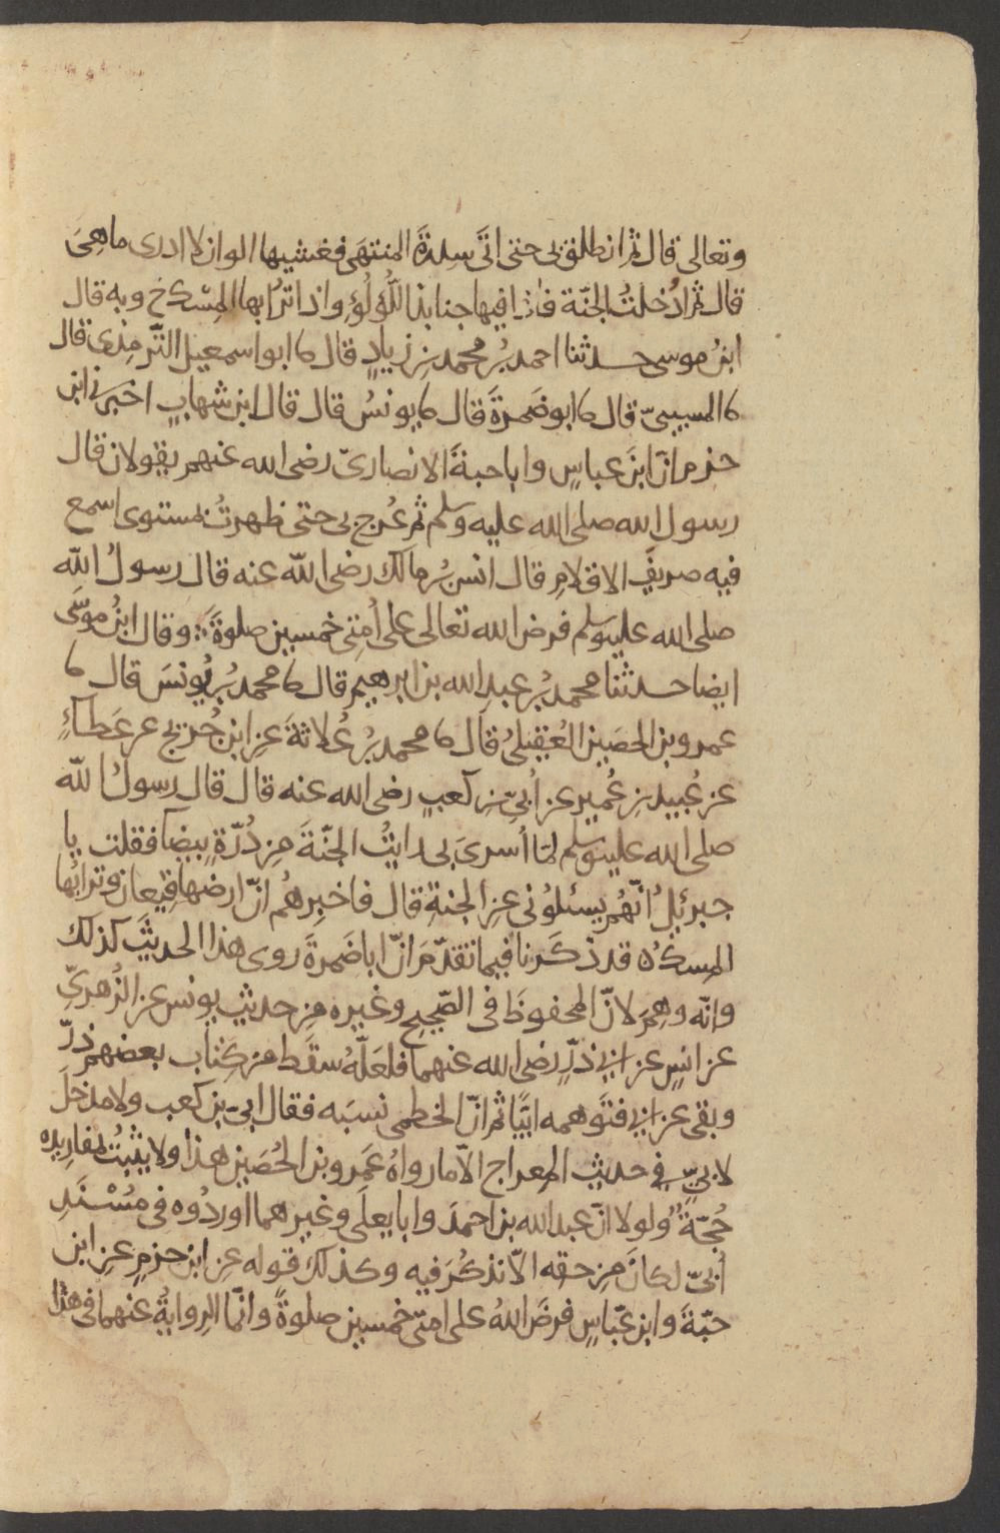 وتعالى قال ثم انطلق بى حتى اتَى سدرةَ المنتهَى فغشيها الوان لا ادرى ما هِىَ
قال ثم ادُخلتُ الجنّة فاذا فيها جنابذ اللُؤلُؤِ واذا ترابها المِسْك خ وبه قال
ابنُ موسى حــدثنا احمد بْرُ محمد بنِ زيادٍ قال ٮا ابو اسمعيل التّرمِذى قال
ٮا المسيبىّ قال ٮا ابو ضَمرةَ قال ٮا يونسُ قال قال ابن شهابٍ اخبرنى ابن
حزم انّ ابنَ عباسٍ وابا حبةَ الانصارىّ رضى الله عنهم يقولان قال
رسول الله صلى الله عليه وسلم ثم عُرج بى حتى ظهرتُ لمستوى اسمع
فيه صريفَ الاقلامِ قال انس بْرُ مالك رضى اللّه عنه قال رسولُ اللّه
صلى الله عليه وسلم فرض الله تعالى على اُمتى خمسين صلوةً ؞ وقال ابنُ موسَى
ايضا حــدثنا محمد بْرُ عبد الله بن ابرهيم قال ٮا محمد بْرُ يُونسَ قال ٮا
عمرو بن الحصَين العُقيلىُ قال ٮا محمد بْرُ عُلاثةَ عن ابن جُريج عن عَطــآءٍ
عن عُبيد بنِ عُميرٍ عن اُبىّ بنِ كعبٍ رضى الله عنه قال قال رسولُ اللّه
صلى الله عليه وسلم لمّا أُسرىَ بى رايتُ الجنّةَ مِن دُرّةٍ بيضآ فقلت يا
جبرئيلُ انّهُم يسئلُونى عنِ الجنةِ قال فاخبِرهُم انّ ارضها قيعان وترابُها
المِسكُ ه قد ذكَرنا فيما تقدّمَ انّ ابا ضَمرةَ روى هذا الحديثَ كذلك
وانّه وهِمَ لانّ المحفوظَ فى الصّحيحِ وغيرِه مِن حديثِ يونس عن الزُهرىّ
عن انسٍ عن ابى ذرٍّ رضى الله عنهما فلعلّهُ سقَط من كِتاب بعضهم ذرّ
وبقى عن ابى فتَوهمه ابيّا ثم انّ الخطمى نسبَه فقال ابى بن كعب ولا مدخلَ
لابىّ فى حديثِ المعراج الّا ما رواهُ عَمرو بن الحُصَين هذا ولا يثبُتُ بمفاريده
حُجّةٌ ولولا انّ عبد الله بن احمدَ وابا يعلَى وغيرهما اوردُوه فى مُسْنَدِ
اُبىّ لكانَ مِن حقه الّا نذكُرَ فيه وكذلك قوله عن ابن حزمٍ عن ابن
حبّةَ وابن عبّاسٍ فرضَ اللهُ على امتى خمسين صلوةً وانّما الرِوايةُ عنهما فى هذا